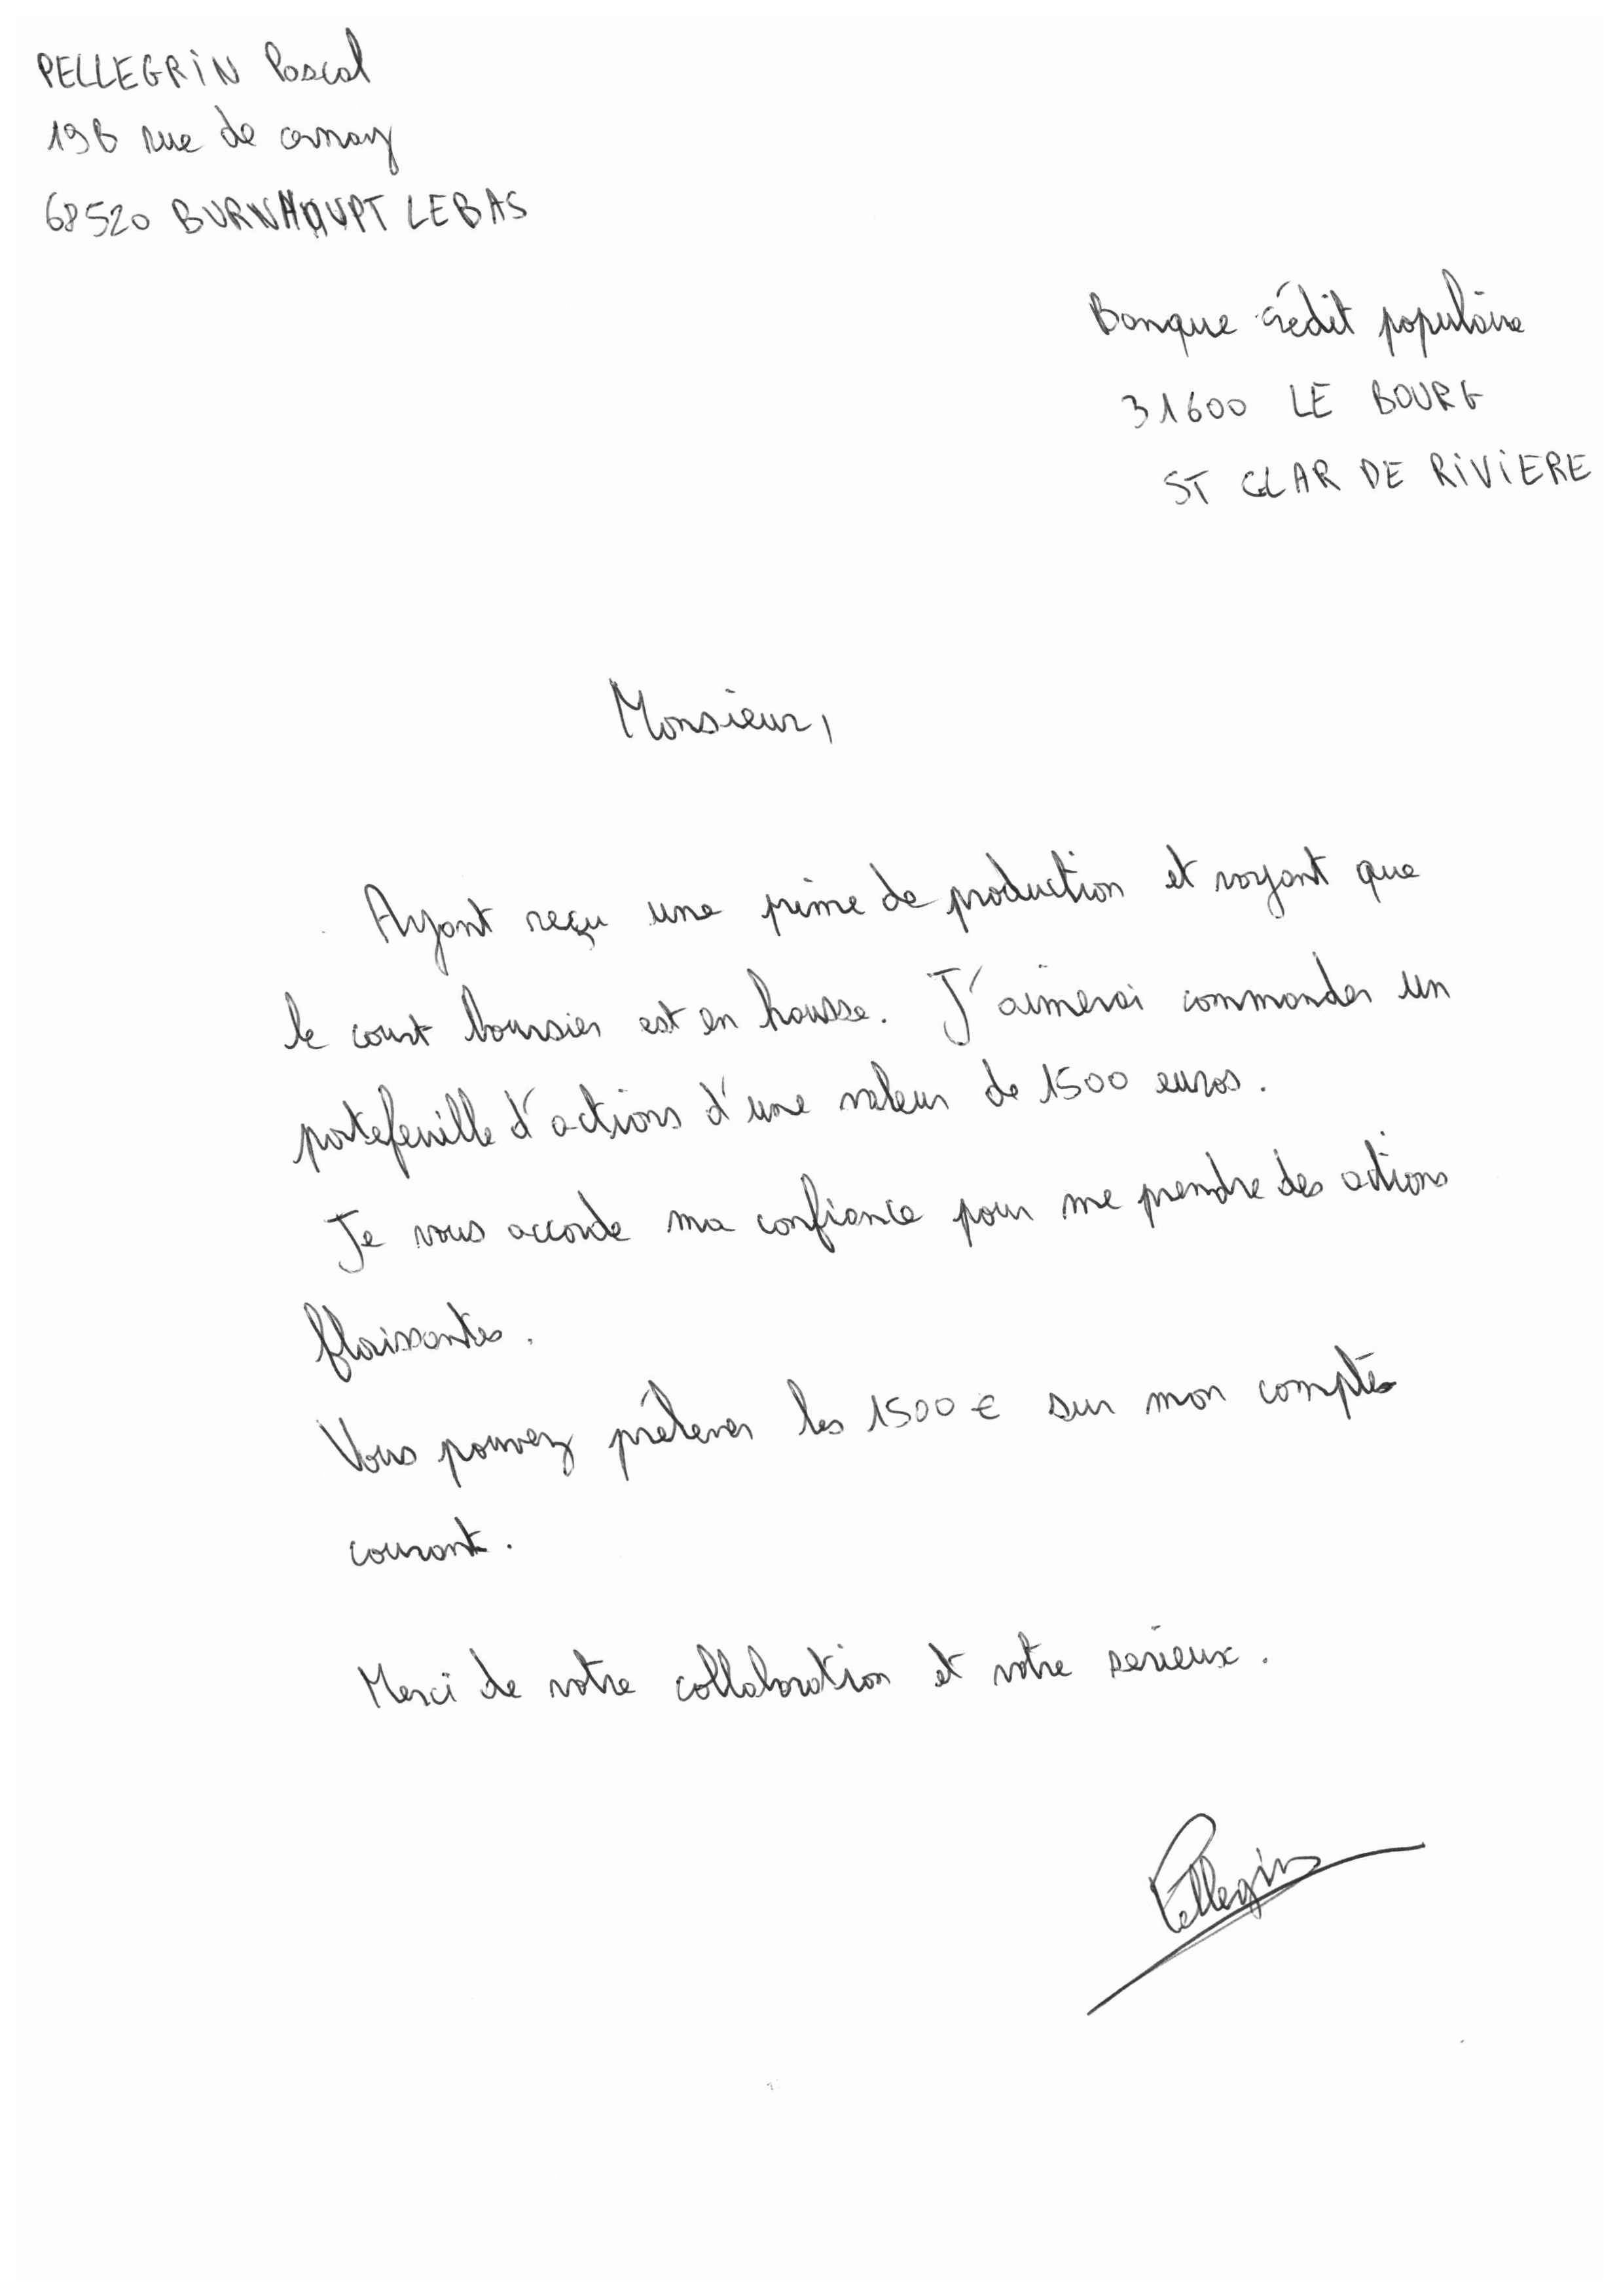 PELLEGRIN Pascal
19B rue de cernay
68520 BURNHAUPT LE BAS
Banque crédit populaire
31600 LE BOURG
ST CLAR DE RIVIERE
Monsieur,
Ayant reçu une prime de production et voyant que
le court boursier est en hausse. J'aimerai commander un
portefeuille d'actions d'une valeur de 1500 euros.
Je vous accorde ma confiance pour me prendre des actions
flaissantes.
Vous pouvez prélever les 1500 € sur mon comptes
courant.
Merci de votre collaboration et votre serieux.
Pellegrin